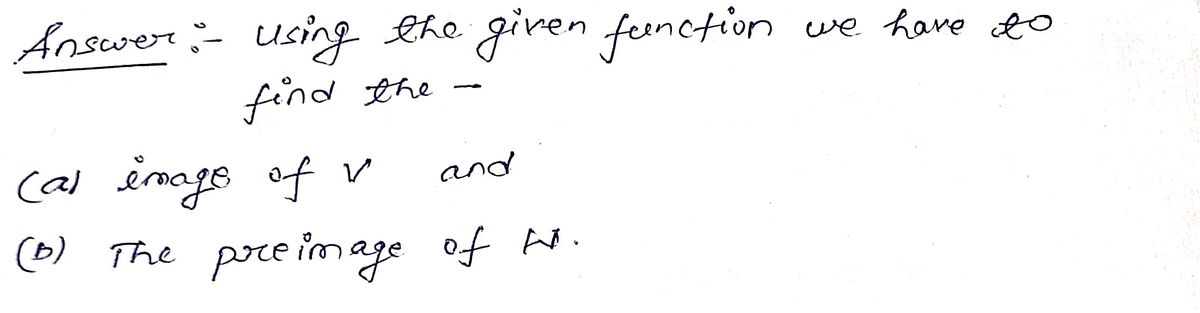 Answer :- Using the given function we have to
find the -
(a) image of v and
(b) The preimage of W.